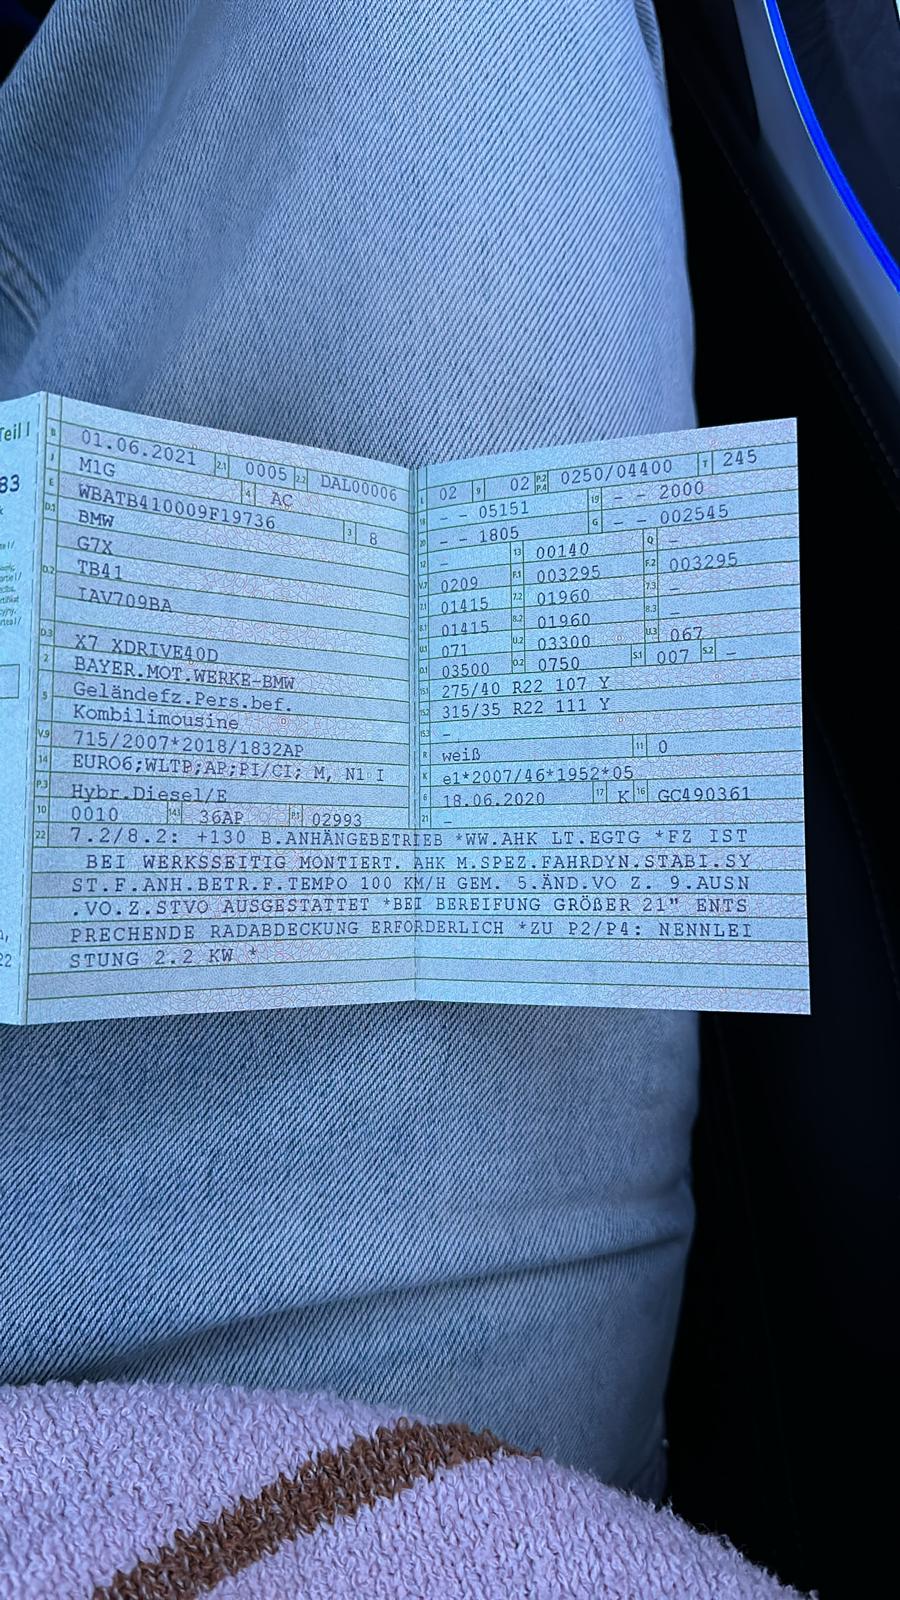 Teil I
83
22
B 01.06.2021 2.1 0005 2.2 DAL00006
J M1G 4 AC
E WBATB410009F19736 3 8
D.1 BMW
G7X
D.2 TB41
IAV709BA
D.3 X7 XDRIVE40D
2 BAYER.MOT.WERKE-BMW
5 Geländefz.Pers.bef.
Kombilimousine
V.9 715/2007*2018/1832AP
14 EURO6;WLTP;AP;PI/CI; M, N1 I
P.3 Hybr.Diesel/E
10 0010 14.1 36AP P.1 02993
L 02 9 02 P.2 P.4 0250/04400 T 245
18 - - 05151 19 - - 2000
20 - - 1805 G - - 002545
12 - 13 00140 Q -
V.7 0209 F.1 003295 F.2 003295
7.1 01415 7.2 01960 7.3 -
8.1 01415 8.2 01960 8.3 -
U.1 071 U.2 03300 U.3 067
O.1 03500 O.2 0750 S.1 007 S.2 -
15.1 275/40 R22 107 Y
15.2 315/35 R22 111 Y
15.3 -
R weiß 11 0
K e1*2007/46*1952*05
6 18.06.2020 17 K 16 GC490361
21 -
22 7.2/8.2: +130 B.ANHÄNGEBETRIEB *WW.AHK LT.EGTG *FZ IST
BEI WERKSSEITIG MONTIERT. AHK M.SPEZ.FAHRDYN.STABI.SY
ST.F.ANH.BETR.F.TEMPO 100 KM/H GEM. 5.ÄND.VO Z. 9.AUSN
.VO.Z.STVO AUSGESTATTET *BEI BEREIFUNG GRÖßER 21" ENTS
PRECHENDE RADABDECKUNG ERFORDERLICH *ZU P2/P4: NENNLEI
STUNG 2.2 KW *